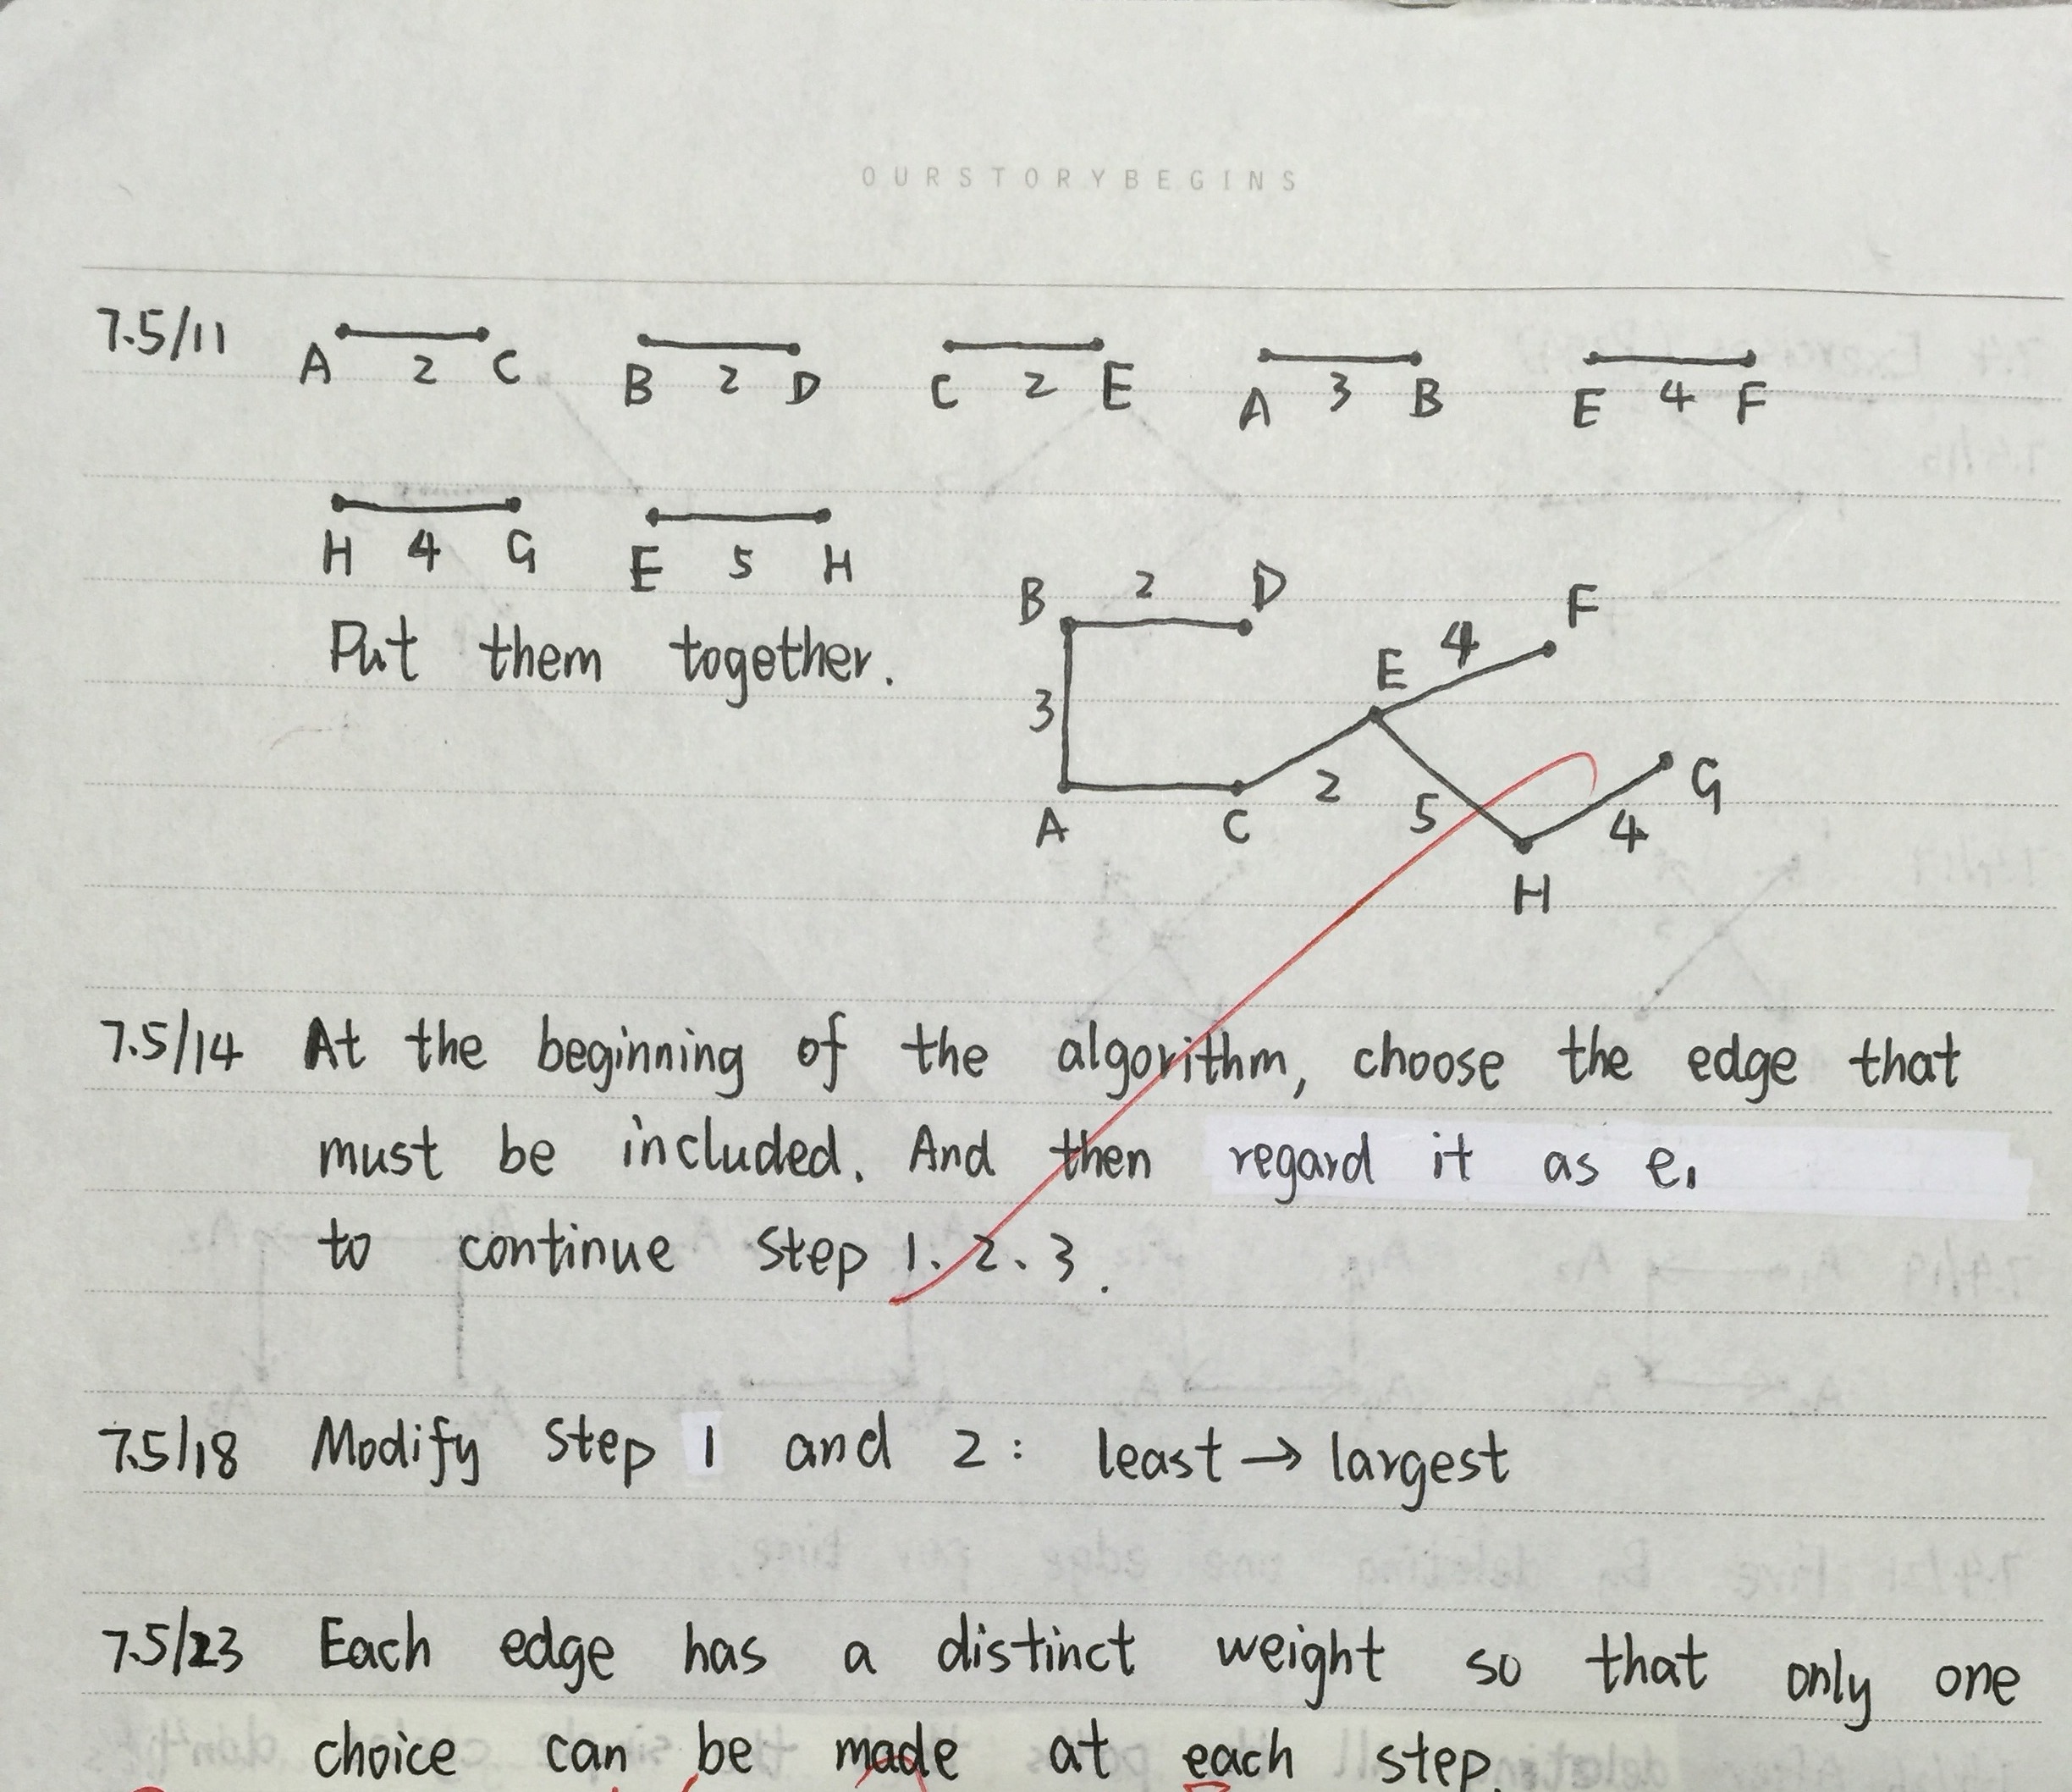 OURSTORYBEGINS
7.5/11 A 2 C B 2 D C 2 E A 3 B E 4 F
H 4 G E 5 H
Put them together.
B 2 D
E 4 F
3
A C 2 5 4 G
H
7.5/14 At the beginning of the algorithm, choose the edge that
must be included. And then regard it as e₁
to continue Step 1、2、3.
7.5/18 Modify Step 1 and 2: least → largest
7.5/23 Each edge has a distinct weight so that only one
choice can be made at each step.